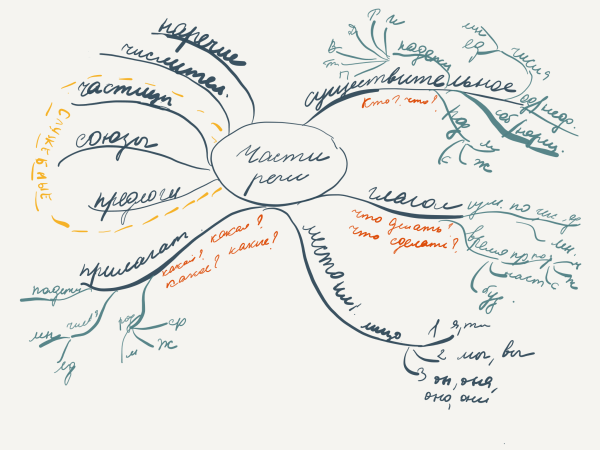 Части
речи
наречие
числител.
частицы
союзы
предлоги
СЛУЖЕБНЫЕ
существительное
Кто? что?
падежи
И
Р
Д
В
Т
П
числа
ед
мн
род
м
с
ж
собс
нариц.
глагол
что делать?
что сделать?
изм. по чис.
ед
мн.
время
прош
наст
буд.
м
ж
с
местоим.
лицо
1 я, ты
2 мы, вы
3 он, она,
оно, они
прилагат.
какой? какая?
какое? какие?
падежи
число
мн
ед
род
ср
ж
м